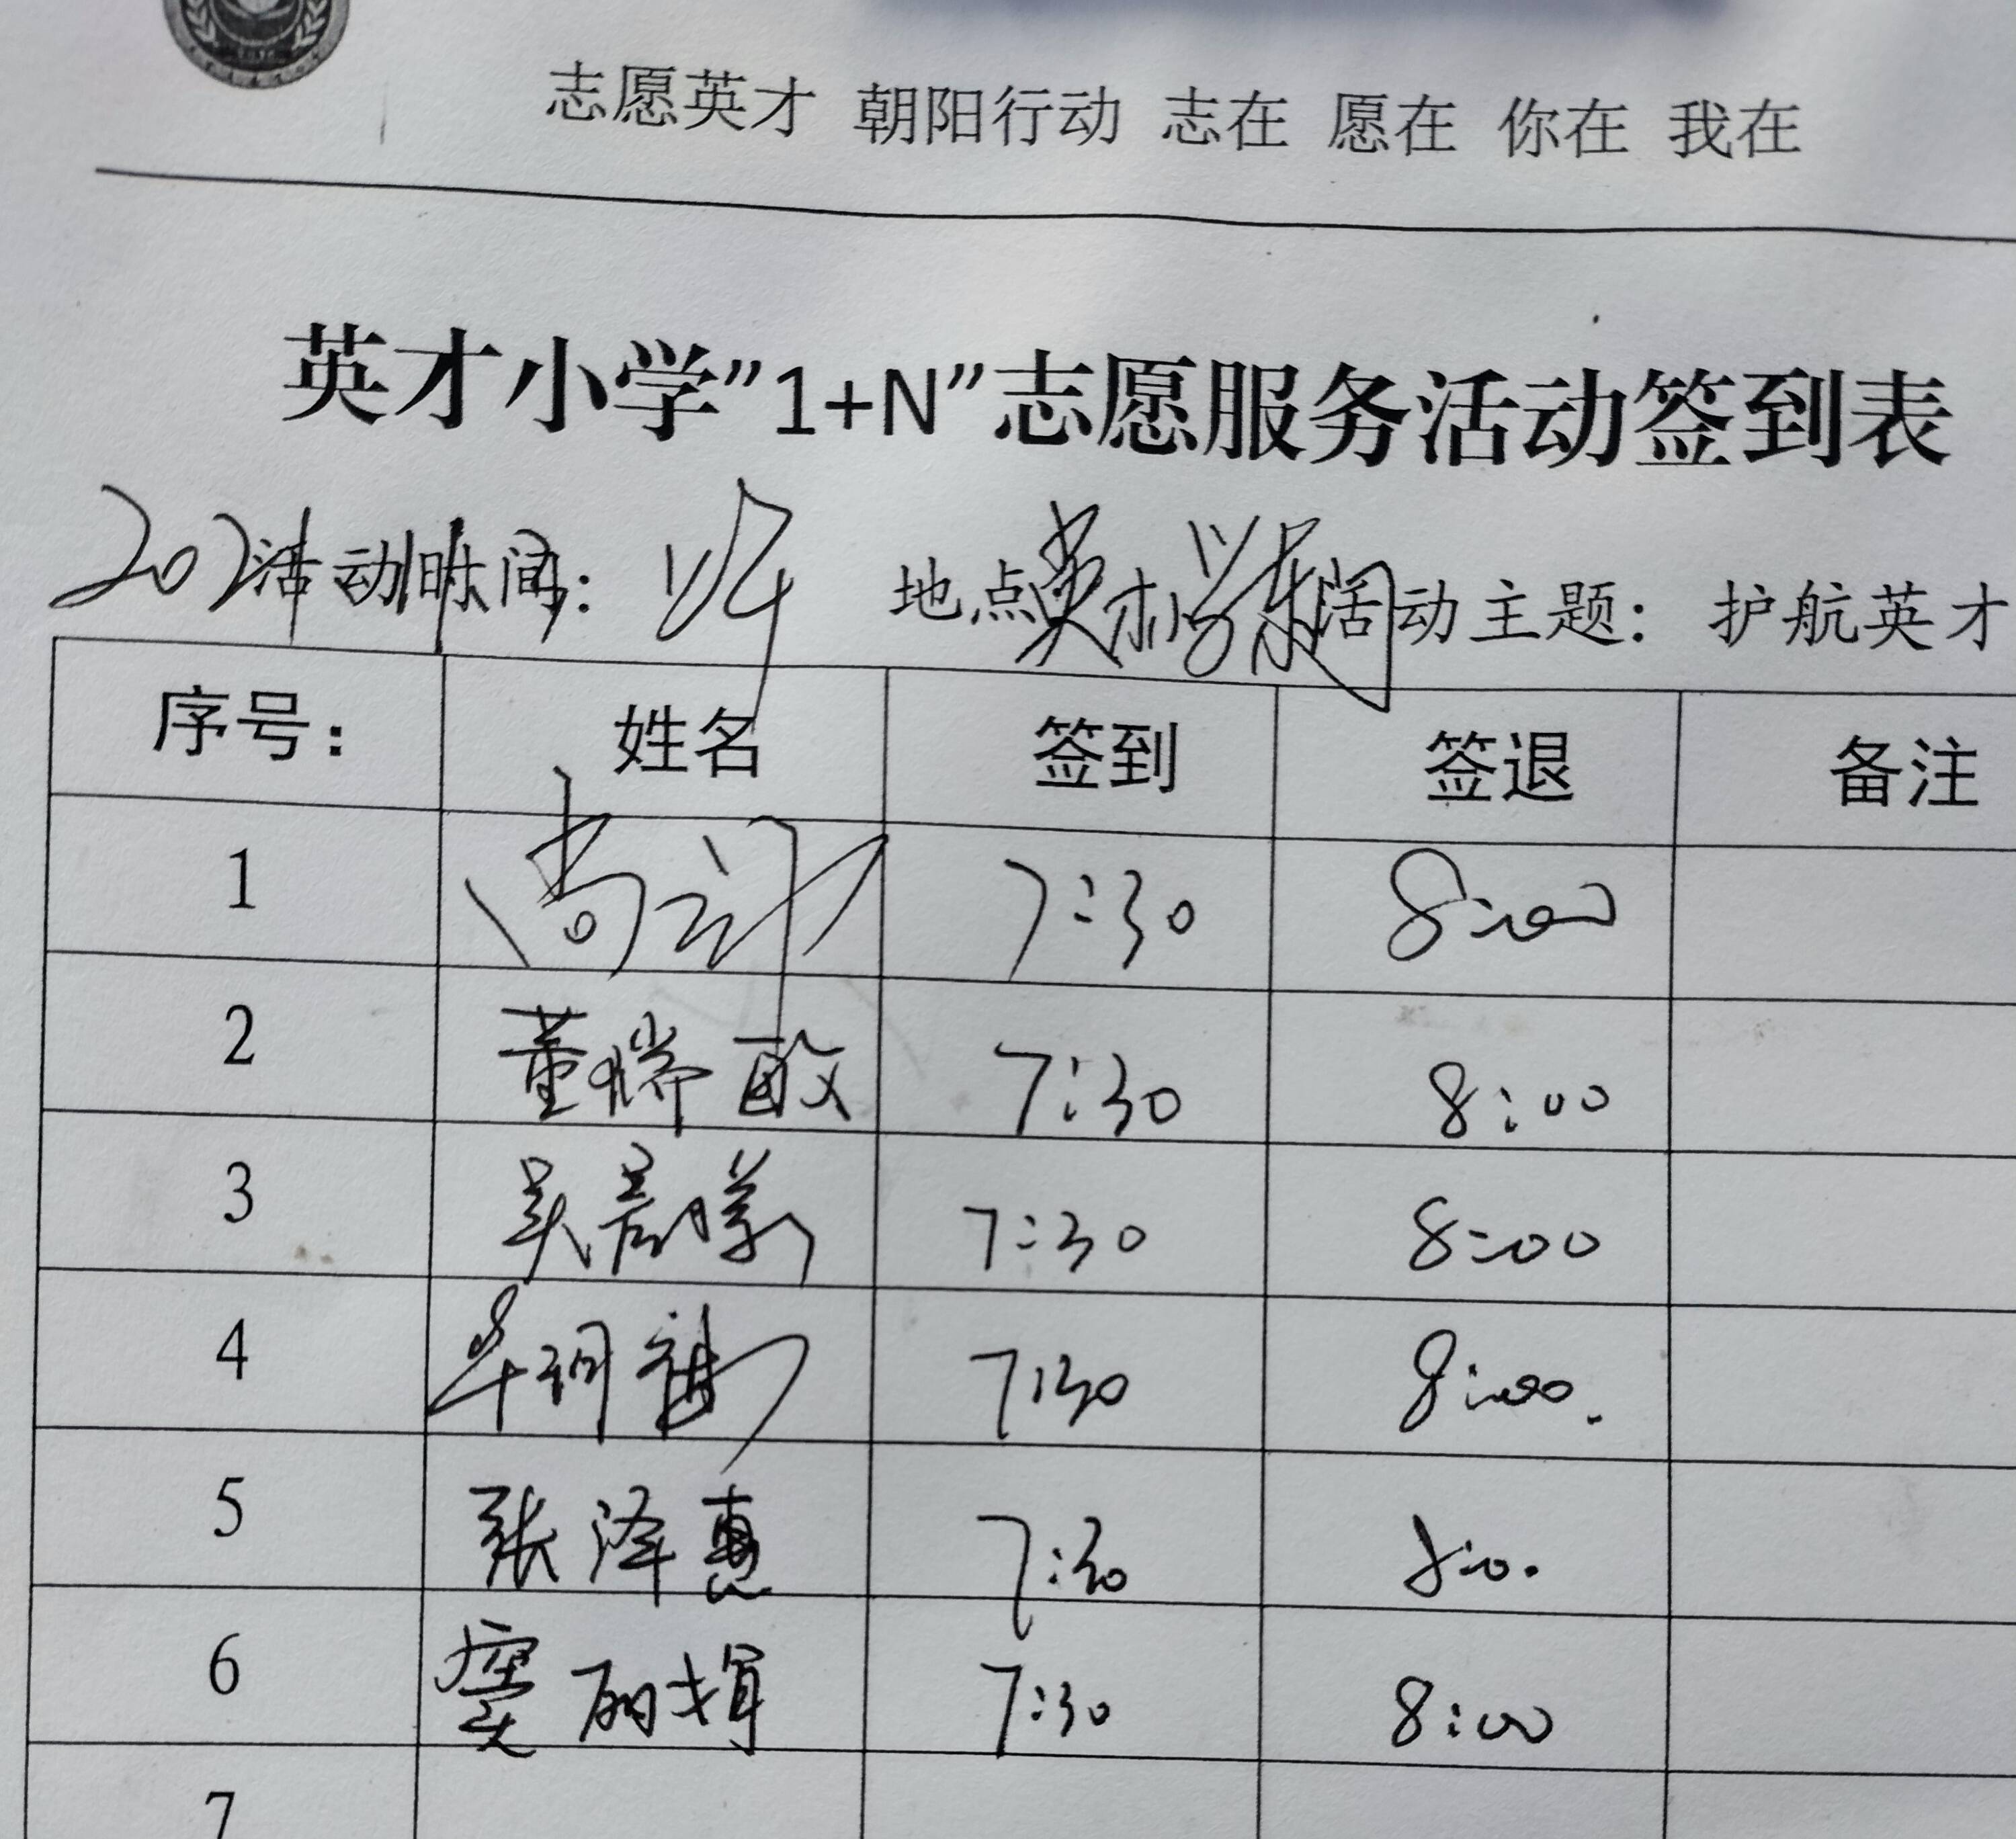 志愿英才 朝阳行动 志在 愿在 你在 我在
英才小学”1+N”志愿服务活动签到表
活动时间: 地点 英才小学东 活动主题: 护航英才
序号: 姓名 签到 签退 备注
1 7:30 8:00
2 董瑞敏 7:30 8:00
3 吴 7:30 8:00
4 7:30 8:00.
5 张泽惠 7:30 8:0.
6 7:30 8:00
7